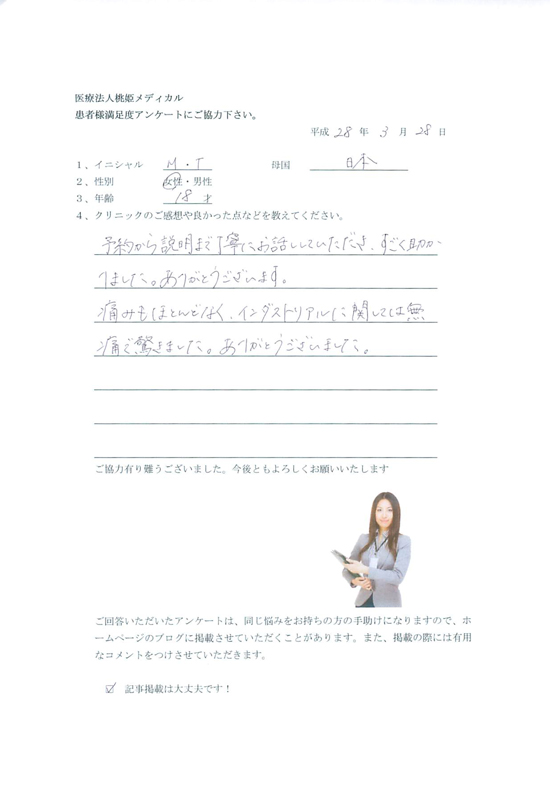 医療法人桃姫メディカル
患者様満足度アンケートにご協力下さい。
平成 28 年 3 月 28 日
1、イニシャル M・T 母国 日本
2、性別 女性・男性
3、年齢 18 才
4、クリニックのご感想や良かった点などを教えてください。
予約から説明まで丁寧にお話ししていただき、すごく助か
りました。ありがとうございます。
痛みもほとんどなく、インダストリアルに関しては無
痛で驚きました。ありがとうございました。
ご協力有り難うございました。今後ともよろしくお願いいたします
ご回答いただいたアンケートは、同じ悩みをお持ちの方の手助けになりますので、ホ
ームページのブログに掲載させていただくことがあります。また、掲載の際には有用
なコメントをつけさせていただきます。
☑ 記事掲載は大丈夫です！